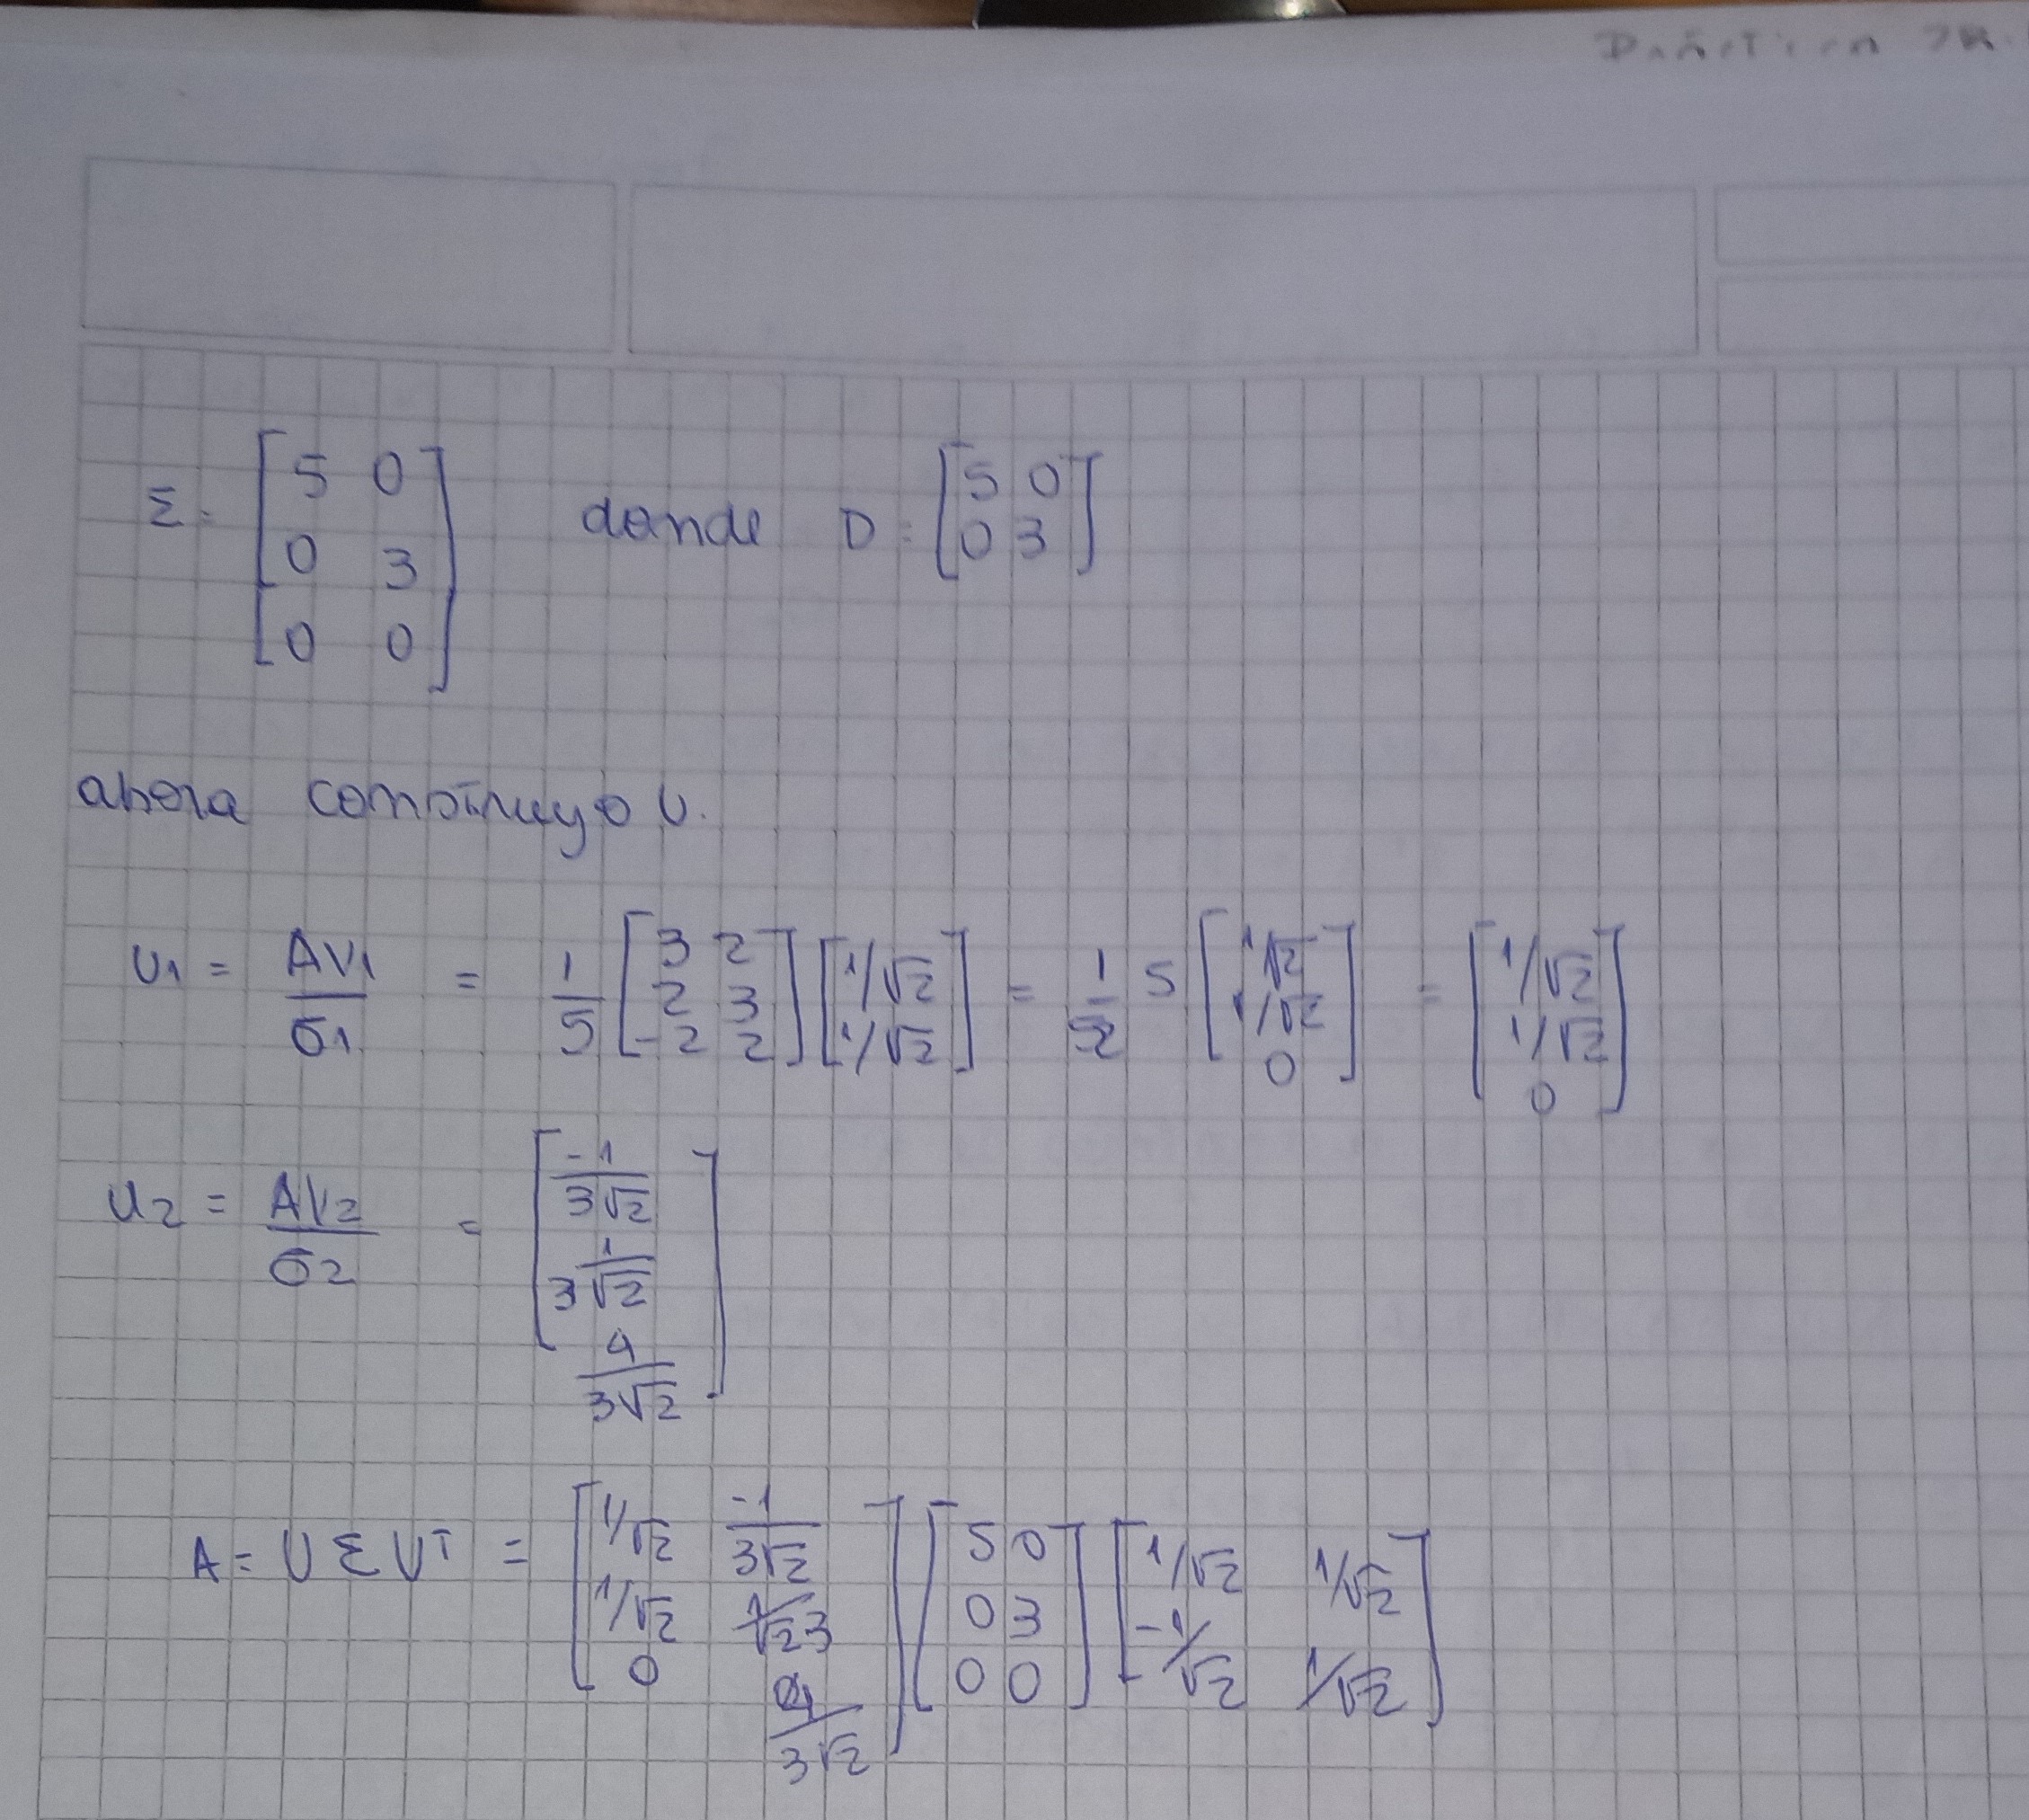 Σ = [5 0; 0 3; 0 0] donde D = [5 0; 0 3]
ahora construyo U.
U1 = AV1/σ1 = 1/5 [3 2; 2 3; -2 2] [1/√2; 1/√2] = 1/5 5 [1/√2; 1/√2; 0] = [1/√2; 1/√2; 0]
U2 = AV2/σ2 = [-1/3√2; 1/3√2; 4/3√2]
A = U Σ V^T = [1/√2 -1/3√2; 1/√2 1/√2 3; 0 4/3√2] [5 0; 0 3; 0 0] [1/√2 1/√2; -1/√2 1/√2]